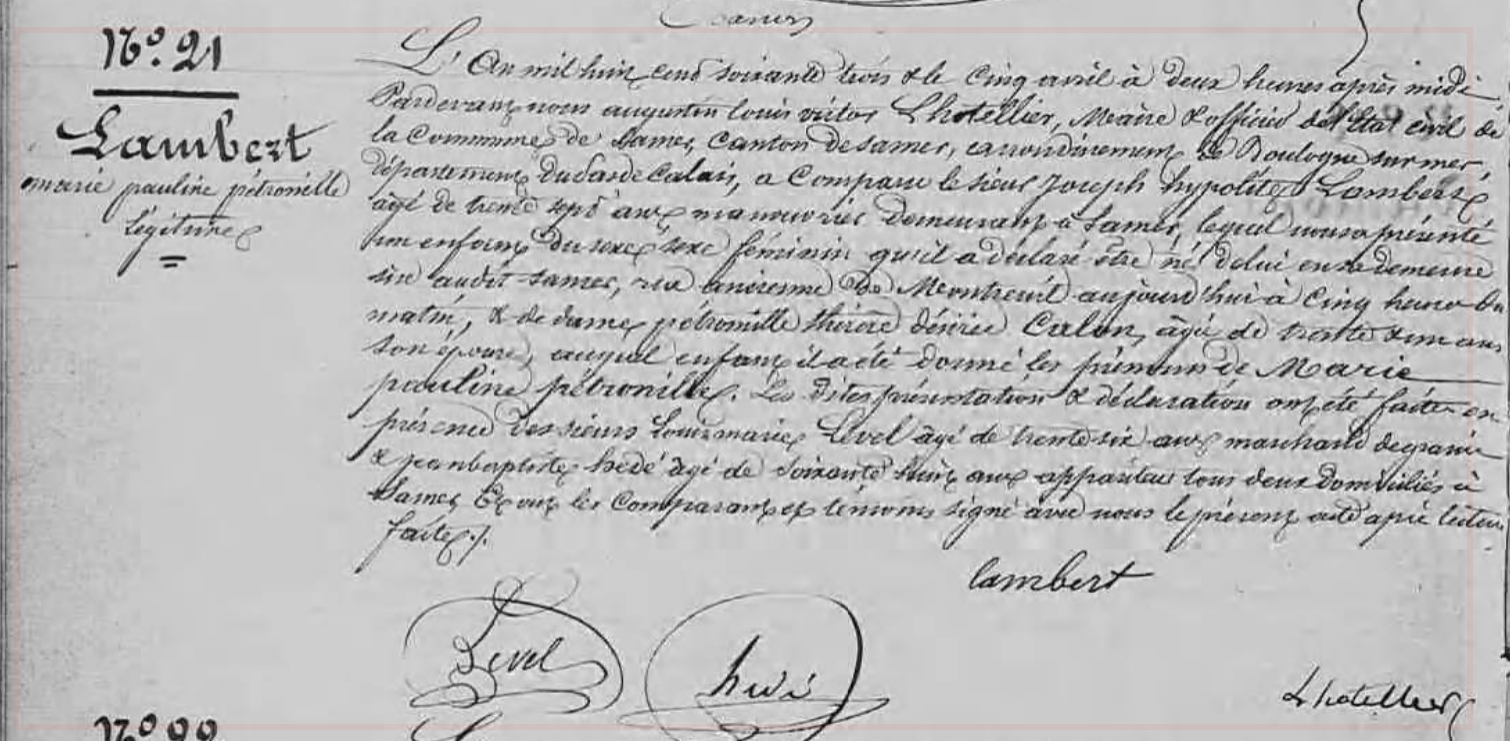 Samer
N.º 21
Lambert
marie pauline pétronille
Légitime
L'An mil huit cent soixante trois & le Cinq avril à deux heures après midi,
Pardevant nous augustin louis victor Lhotellier, Maire & officier de l'Etat civil de
la Commune de Samer, Canton de samer, arrondissement de Boulogne sur mer,
département du Pas de Calais, a Comparu le sieur Joseph hypolite Lambert
âgé de trente sept ans manouvrier demeurant à Samer, lequel nous a présenté
un enfant du sexe sexe féminin qu'il a déclaré être né de lui en sa demeure
sise audit samer, rue ancienne de Montreuil aujourd'hui à Cinq heures du
matin, & de dame pétronille thérèse désirée Calon, âgée de trente & un ans
son épouse, auquel enfant il a été donné les prénoms de Marie
pauline pétronille. Les dites présentation & déclaration ont été faites en
présence des sieurs Louis marie Level âgé de trente six ans marchand de grains
& jean baptiste hedé âgé de soixante huit ans appariteur tous deux domiciliés à
Samer Et ont les Comparant et témoins signé avec nous le présent acte après lecture
faite ./.
lambert
Level
hedé
Lhotellier
N.º 22